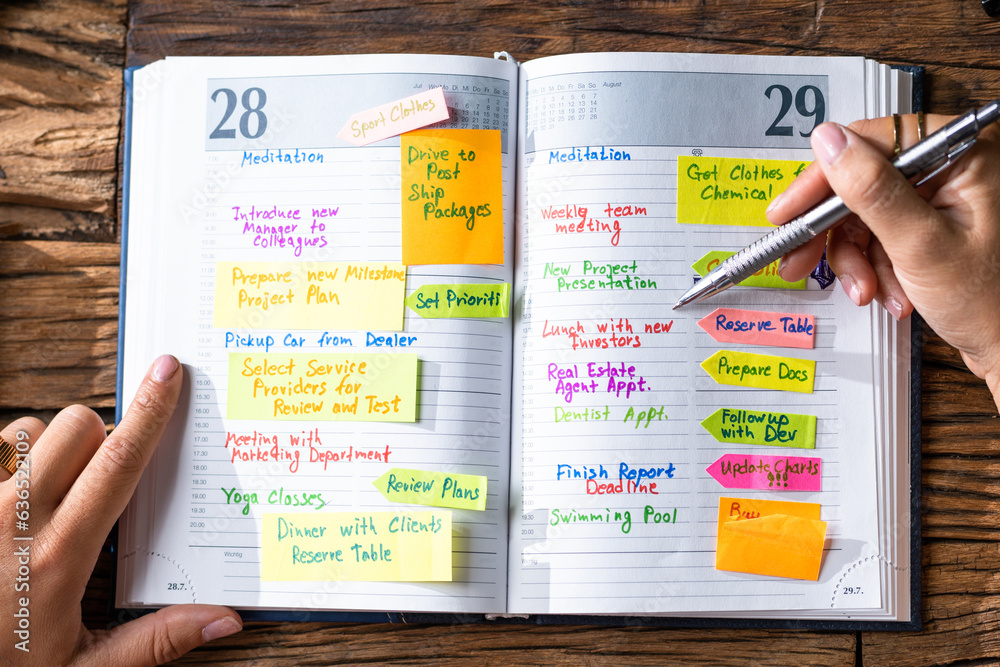 28
Sport Clothes
Meditation
Drive to
Post
Ship
Packages
Introduce new
Manager to
Colleagues
Prepare new Milestone
Project Plan
Set Prioriti
Pickup Car from Dealer
Select Service
Providers for
Review and Test
Meeting with
Marketing Department
Review Plans
Yoga Classes
Dinner with Clients
Reserve Table
Wichtig
28.7.
August
29
Meditation
Get Clothes
Chemical
Weekly team
meeting
New Project
Presentation
Lunch with new
Investors
Reserve Table
Real Estate
Agent Appt.
Prepare Docs
Dentist Appt.
Followup
with Dev
Finish Report
Deadline
Update Charts
!!!
Swimming Pool
29.7.
Adobe Stock | #636522109